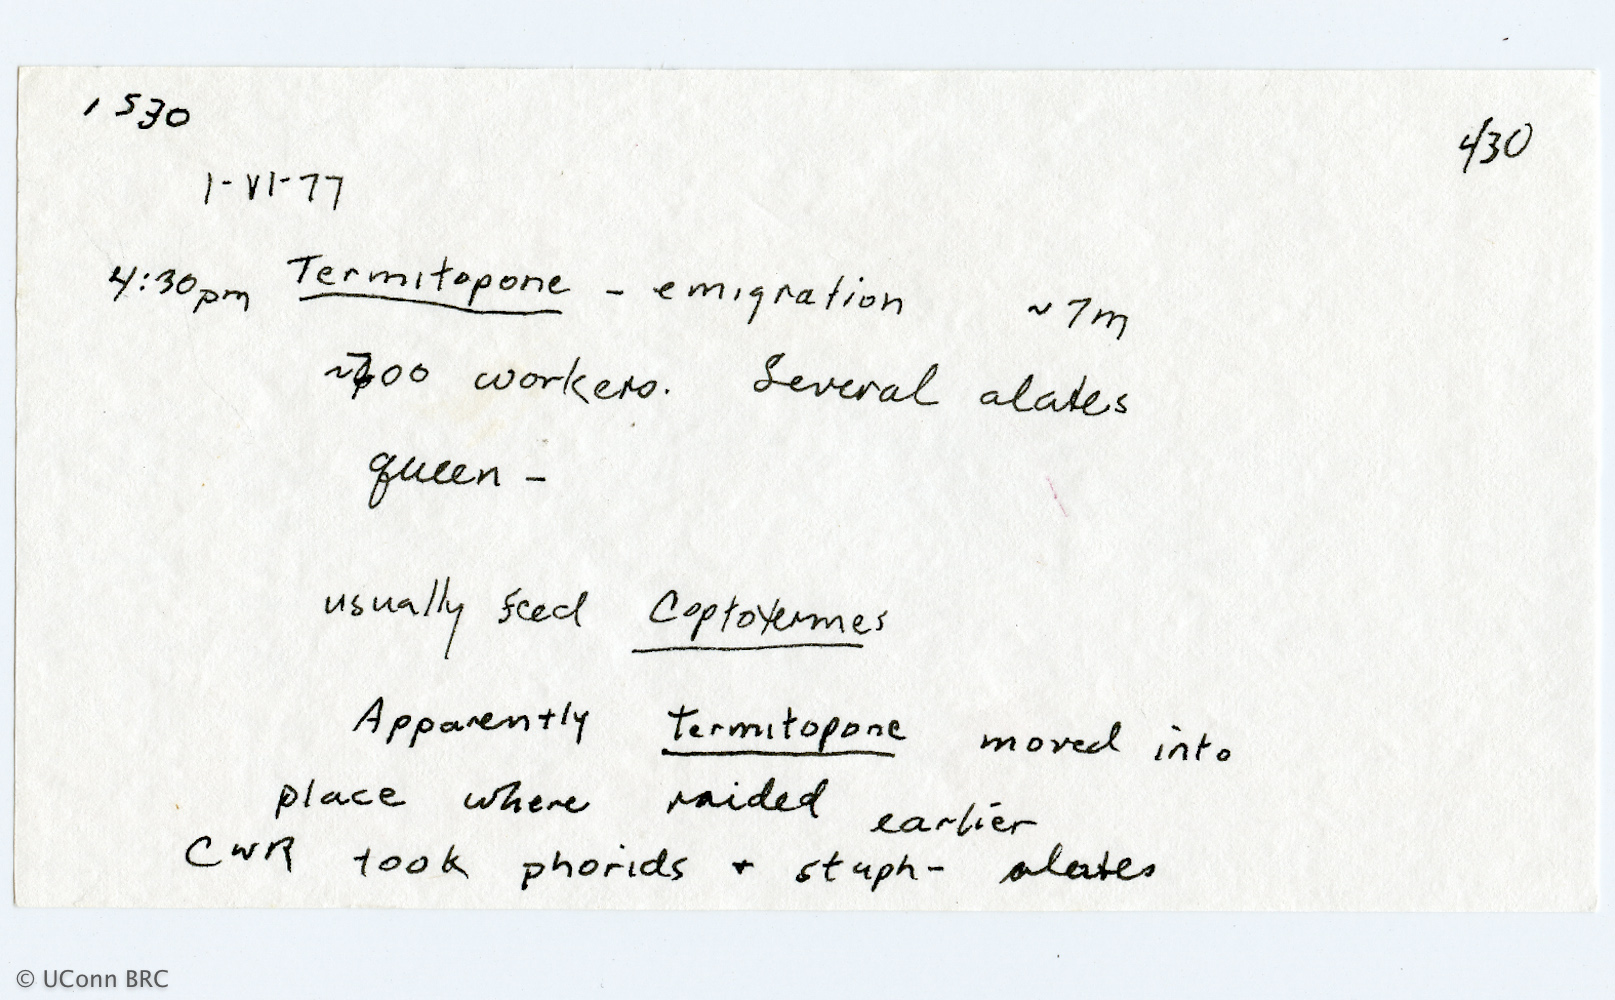 1530
430
1-VI-77
4:30pm Termitopone - emigration ~7m
~700 workers. Several alates
queen -
usually feed Coptotermes
Apparently Termitopone moved into
place where raided earlier
CWR took phorids + staph- alates
© UConn BRC